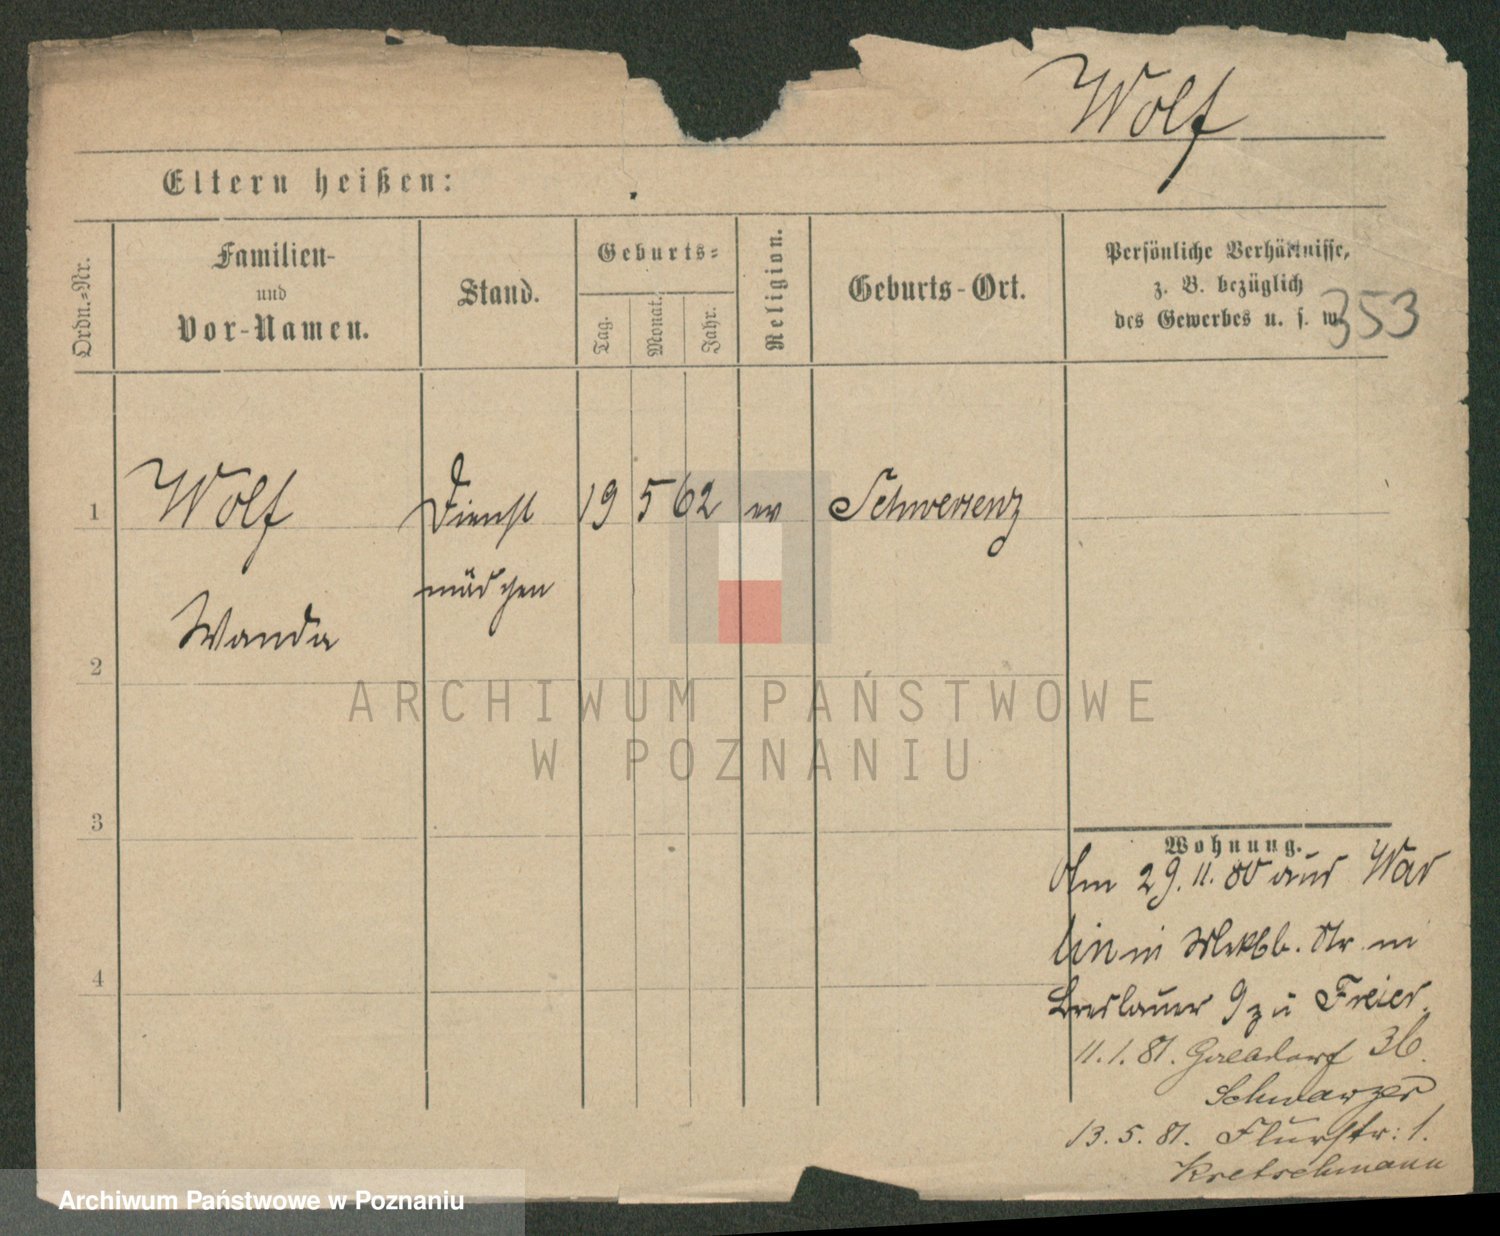 Wolf
Eltern heißen:
Ordn.=Nr.
Familien-
und
Vor-Namen.
Stand.
Geburts=
Tag.
Monat.
Jahr.
Religion.
Geburts-Ort.
Persönliche Verhältnisse,
z. B. bezüglich
des Gewerbes u. s. w.
353
1 Wolf Dienst 19 5 62 ev Schwersenz
mädchen
Wanda
2
3
4
Wohnung.
Am 29. 11. 80 aus War
lin in
Breslauer 9 zu Freier.
11. 1. 81. 36.
Schwarzer
13. 5. 81. Flurstr: 1.
Kretschmann
ARCHIWUM PAŃSTWOWE
W POZNANIU
Archiwum Państwowe w Poznaniu